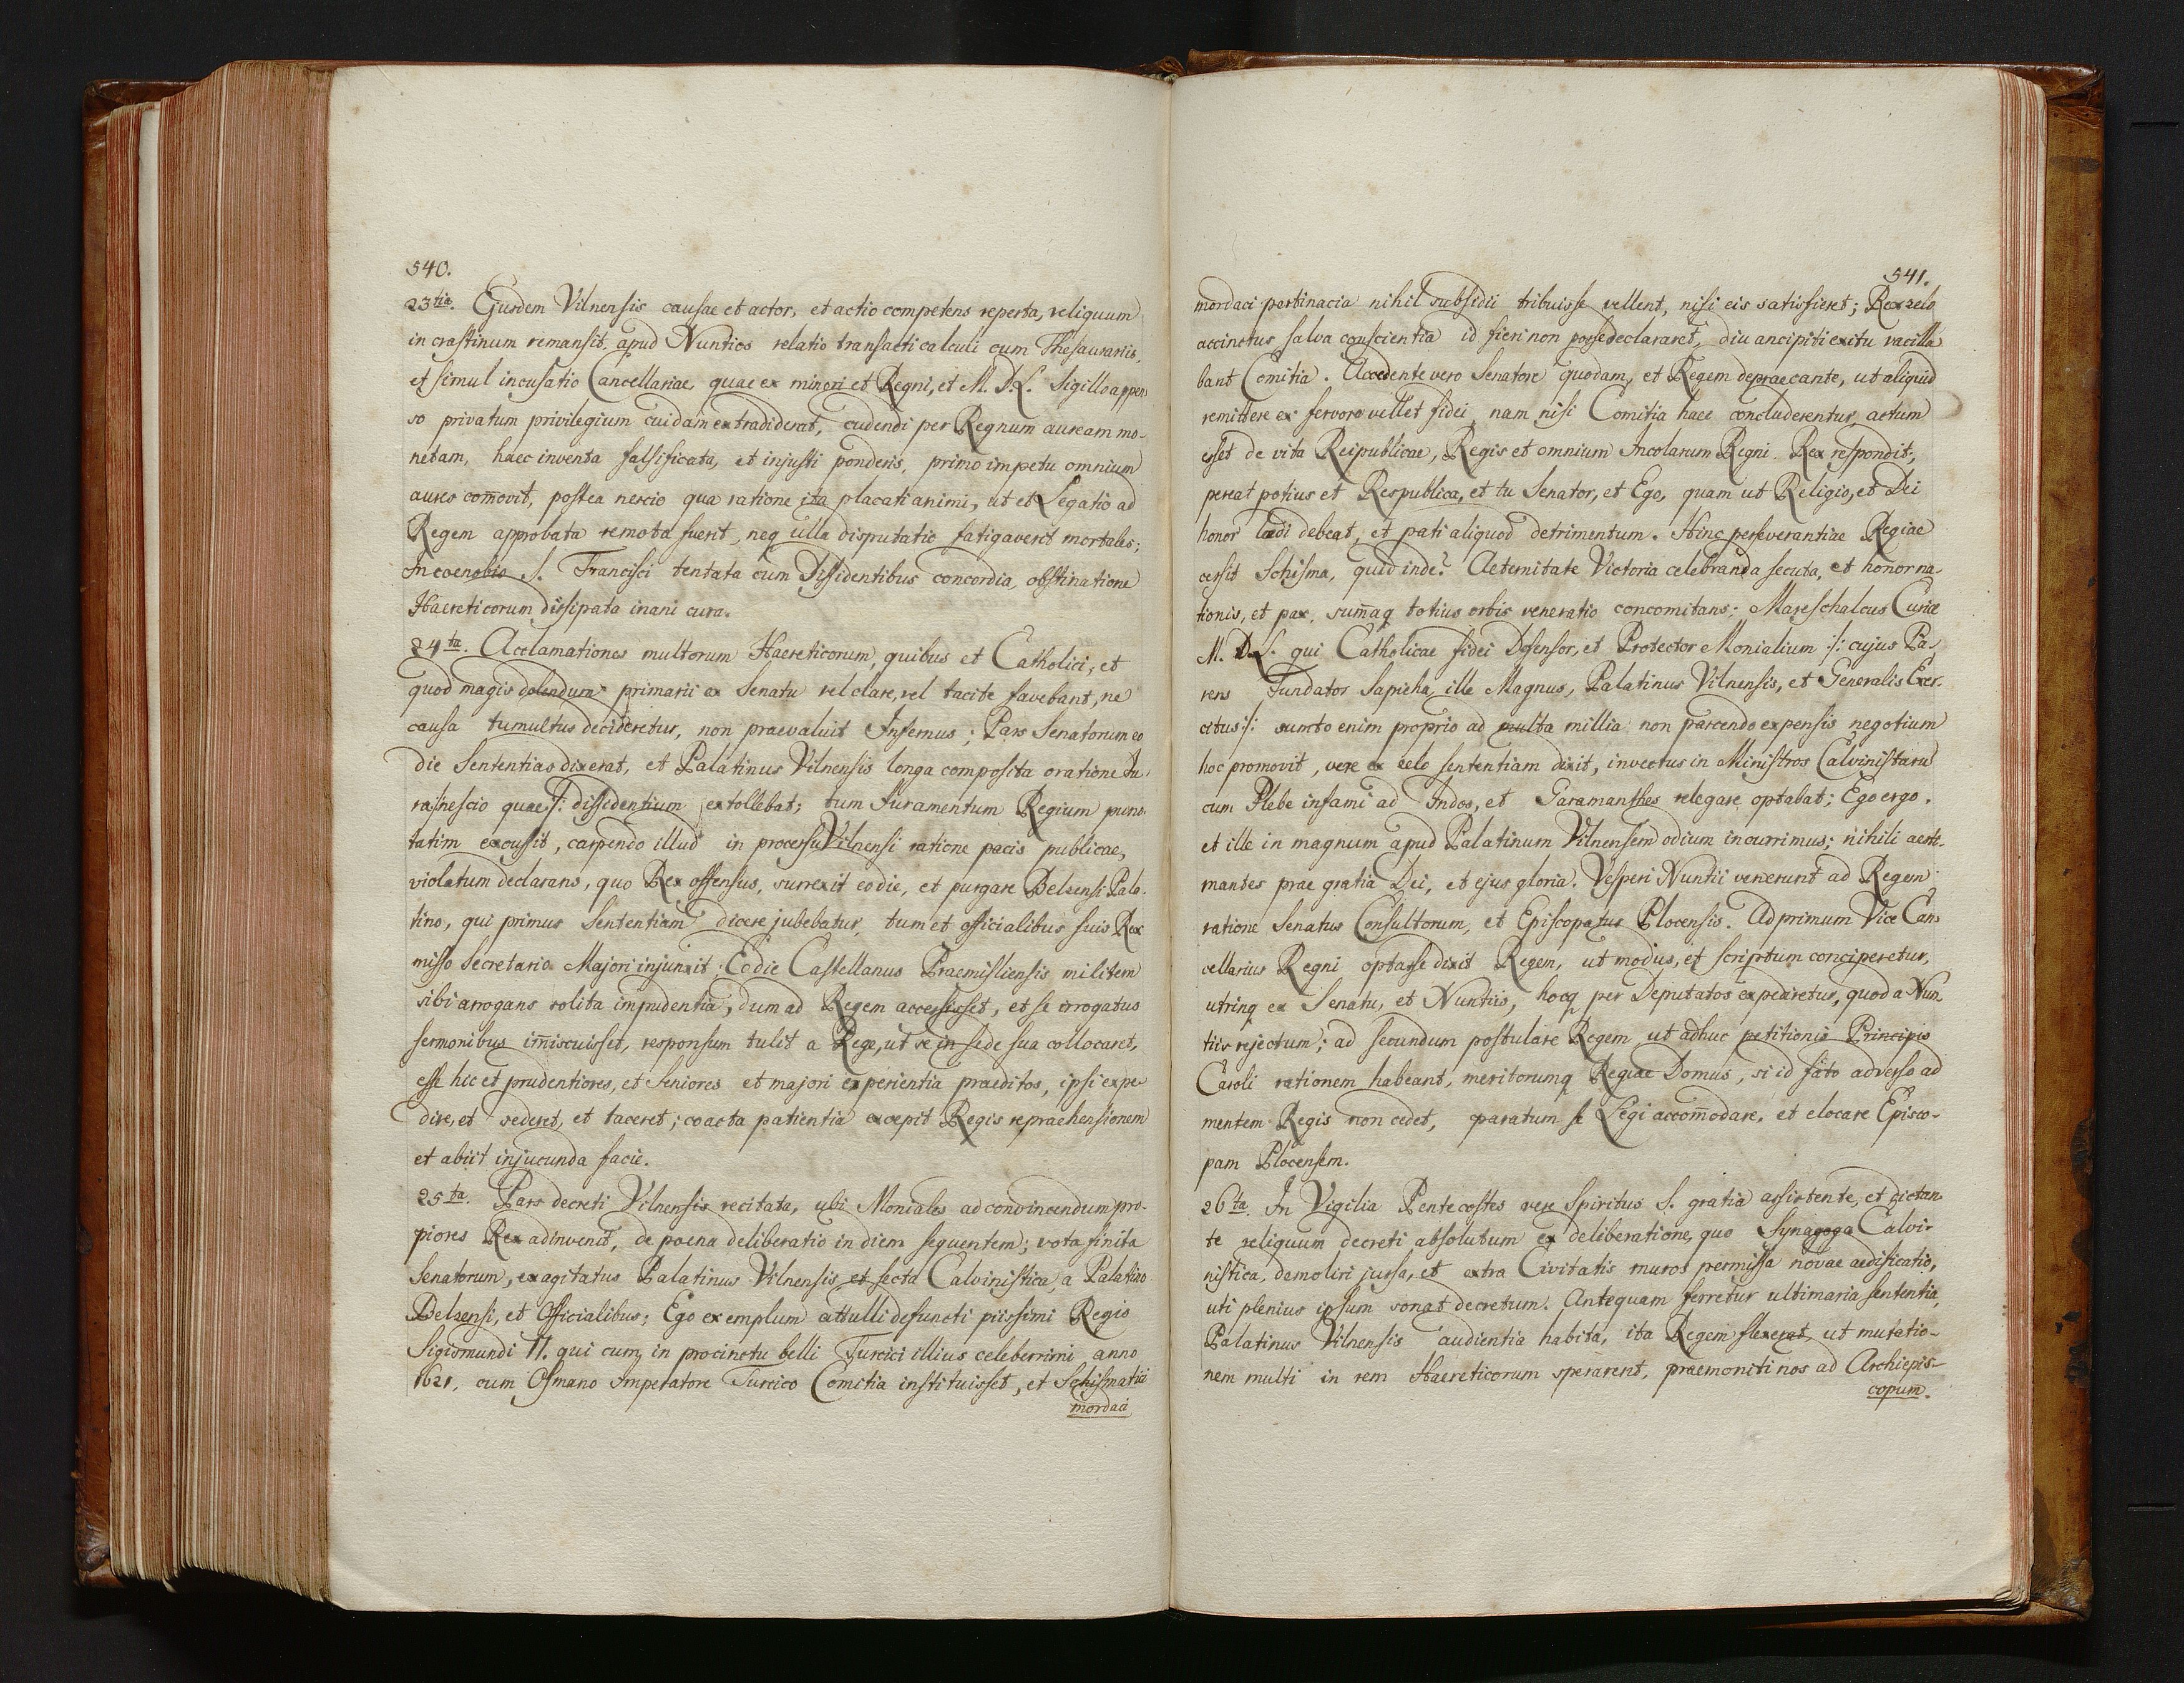 540.
23tia. Ejusdem Vilnensis causae et actor, et actio competens reperta, reliquum
in crastinum remansit, apud Nuntios relatio transacti calculi cum Thesaurariis,
et simul incusatio Cancellariae, quae ex minori et Regni, et M. D. L. Sigillo appen-
so privatum privilegium cuidam extradiderat, cudendi per Regnum auream mo-
netam, haec inventa falsificata, et injusti ponderis, primo impetu omnium
aures com̄ovit, postea nescio qua ratione ita placati animi, ut et Legatio ad
Regem approbata remota fuerit, neq ulla disputatio fatigaverit mortales;
In coenobio S. Francisci tentata cum Dissidentibus concordia, obstinatione
Haereticorum dissipata inani cura.
24ta. Acclamationes multorum Haereticorum, quibus et Catholici, et
quod magis dolendum primarii ex Senatu vel clare, vel tacite favebant, ne
causa tumultus decideretur, non praevaluit Infernus; Pars Senatorum eo
die Sententias dixerat, et Palatinus Vilnensis longa composita oratione Ju-
ra /: nescio quae :/ dissidentium extollebat; tum Juramentum Regium punc-
tatim excussit, carpendo illud in processu Vilnensi ratione pacis publicae,
violatum declarans, quo Rex offensus, surrexit eo die, et purgare Belzensi Pala-
tino, qui primus Sententiam dicere jubebatur, tum et officialibus suis Rex
misso Secretario Majori injunxit; Eo die Castellanus Praemisliensis militem
sibi arrogans solita impudentia, dum ad Regem accessisset, et se irrogatus
sermonibus im̄iscuisset, responsum tulit a Rege, ut se in sede sua collocaret,
esse hic et prudentiores, et Seniores et majori experientia praeditos, ipsi expe
dire, et sederet, et taceret; coacta patientia excepit Regis repraehensionem
et abiit injucunda facie.
25ta. Pars decreti Vilnensis recitata, ubi Moniales ad convincendum pro-
piores Rex adinvenit, de poena deliberatio in diem sequentem; vota finita
Senatorum, exagitatus Palatinus Vilnensis et secta Calvinistica, a Palatino
Belzensi, et Officialibus; Ego exemplum attulli defuncti piissimi Regis
Sigismundi II. qui cum, in procinctu belli Turcici illius celeberrimi anno
1621. cum Osmano Imperatore Turcico Comitia instituisset, et Schismatici
mordaci
541.
mordaci pertinacia nihil subsidii tribuisse vellent, nisi eis satisfieret; Rex zelo
accinctus salva conscientia id fieri non posse declararet, diu ancipiti exitu vacilla
bant Comitia. Accedente vero Senatore quodam, et Regem depraecante, ut aliquid
remittere ex fervore vellet fidei, nam nisi Comitia haec concluderentur, actum
esset de vita Reipublicae, Regis et omnium Incolarum Regni. Rex respondit;
pereat potius et Respublica, et tu Senator, et Ego, quam ut Religio, et Dei
honor laedi debeat, et pati aliquod detrimentum. Hinc perseverantiae Regiae
cessit Schisma, quid inde? Aeternitate Victoria celebranda secuta, et honor na-
tionis, et pax, sum̄aq totius orbis veneratio concomitans; Mareschalcus Curiae
M. D. L. qui Catholicae fidei Defensor, et Protector Monialium :/: cujus Pa-
rens Fundator Sapieha, ille Magnus, Palatinus Vilnensis, et Generalis Exer-
citus :/: sumto enim proprio ad multa millia non parcendo expensis negotium
hoc promovit, vere ex zelo sententiam dixit, invectus in Ministros Calvinistaru
cum Plebe infami ad Indos, et Garamanthes relegare optabat; Ego ergo,
et ille in magnum apud Palatinum Vilnensem odium incurrimus; nihili aesti-
mantes prae gratia Dei, et ejus gloria. Vesperi Nuntii venerunt ad Regem
ratione Senatus Consultorum, et Episcopatus Plocensis. Ad primum Vice Can-
cellarius Regni optasse dixit Regem, ut modus, et scriptum conciperetur,
utrinq ex Senatu, et Nuntiis, hocq per Deputatos expediretur, quod a Nun-
tiis rejectum; ad secundum postulare Regem ut adhuc petitionis Principis
Caroli rationem habeant, meritorumq Regiae Domus, si id fato adverso ad
mentem Regis non cedet, paratum se Legi accom̄odare, et elocare Episco-
pam Plocensem.
26ta. In Vigilia Pentecostes vere Spiritus S. gratia assistente, et dictan-
te reliquum decreti absolutum ex deliberatione, quo Synagoga Calvi-
nistica, demoliri jussa, et extra Civitatis muros permissa novae aedificatio,
uti plenius ipsum sonat decretum. Antequam ferretur ultimaria sententia,
Palatinus Vilnensis audientia habita, ita Regem flexerat, ut mutatio-
nem multi in rem Haereticorum sperarent, praemoniti nos ad Archiepis-
copum.